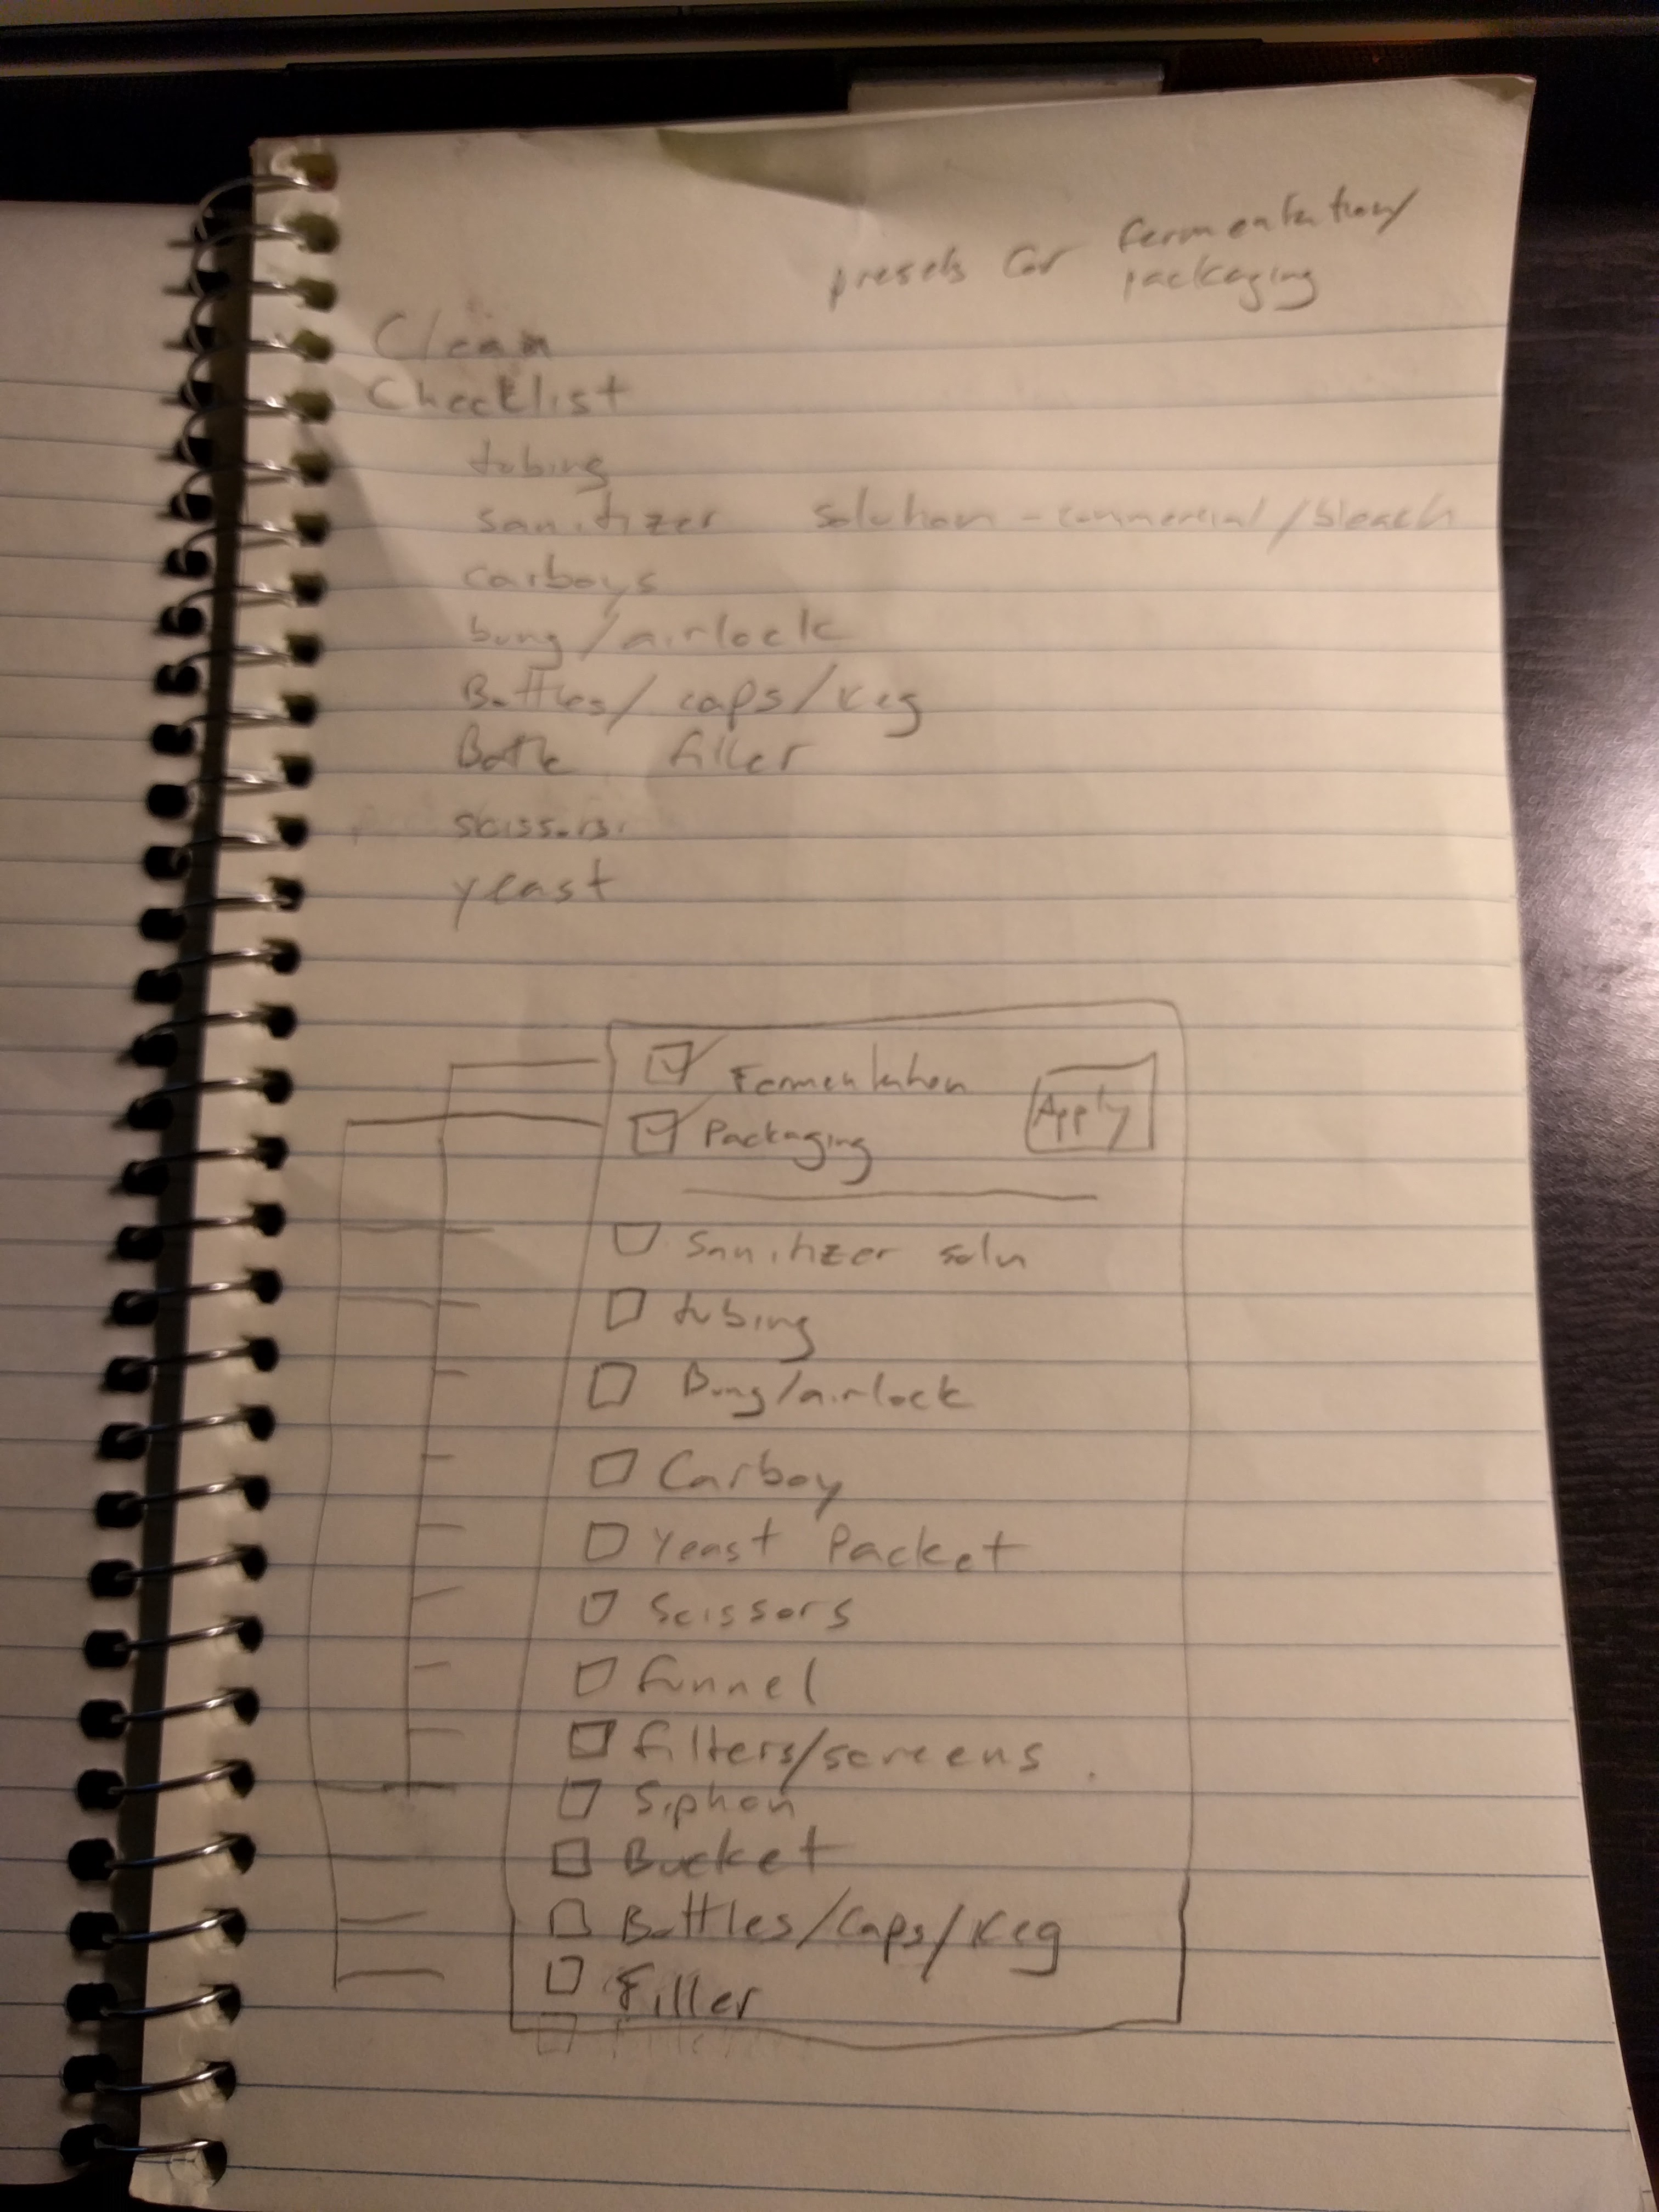 presets for fermentation/
packaging
Clean
Checklist
tubing
sanitizer solution - commercial/bleach
carboys
bung/airlock
Bottles/caps/keg
Bottle filler
scissors
yeast
Fermentation
Packaging
Apply
Sanitizer soln
tubing
Bung/airlock
Carboy
Yeast Packet
Scissors
funnel
filters/screens
Siphon
Bucket
Bottles/caps/Keg
Filler